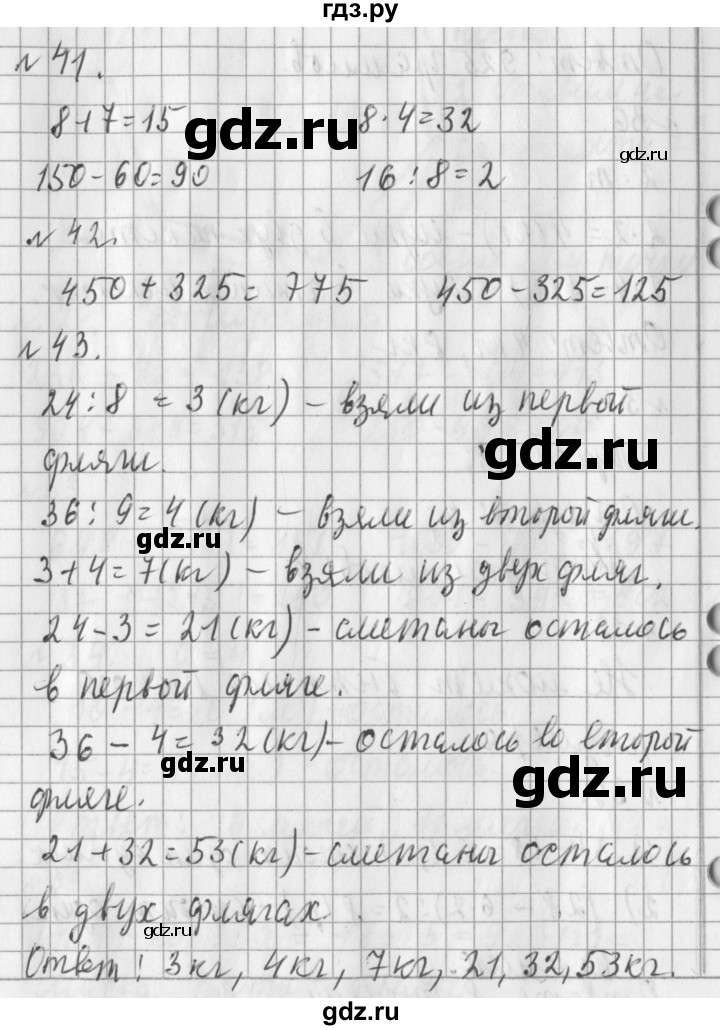 гдз.ру
№ 41.
8+7=15 8·4=32
150-60=90 16:8=2
№ 42.
450+325=775 450-325=125
№ 43.
24:8=3(кг) – взяли из первой
фляги.
36:9=4(кг) – взяли из второй фляги.
3+4=7(кг) – взяли из двух фляг.
24-3=21(кг) – сметаны осталось
в первой фляге.
36-4=32(кг) – осталось во второй
фляге.
21+32=53(кг) – сметаны осталось
в двух флягах.
Ответ: 3кг, 4кг, 7кг, 21, 32, 53кг.
gdz.ru
gdz.ru
gdz.ru
gdz.ru
gdz.ru
gdz.ru
gdz.ru
gdz.ru
gdz.ru
gdz.ru